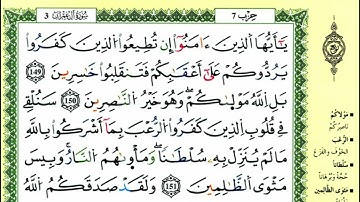 3 سُورَةُ آلِ عِمْرَانَ حِزْب 7
يَٰٓأَيُّهَا ٱلَّذِينَ ءَامَنُوٓاْ إِن تُطِيعُواْ ٱلَّذِينَ كَفَرُواْ
يَرُدُّوكُمْ عَلَىٰٓ أَعْقَٰبِكُمْ فَتَنقَلِبُواْ خَٰسِرِينَ 149
بَلِ ٱللَّهُ مَوْلَىٰكُمْ وَهُوَ خَيْرُ ٱلنَّٰصِرِينَ 150 سَنُلْقِي
فِي قُلُوبِ ٱلَّذِينَ كَفَرُواْ ٱلرُّعْبَ بِمَآ أَشْرَكُواْ بِٱللَّهِ
مَا لَمْ يُنَزِّلْ بِهِۦ سُلْطَٰنًا وَمَأْوَىٰهُمُ ٱلنَّارُ وَبِيسَ
مَثْوَى ٱلظَّٰلِمِينَ 151 وَلَقَدْ صَدَقَكُمُ ٱللَّهُ
مَوْلَاكُمْ
نَاصِرُكُمْ
الرُّعْبَ
الخَوْفَ وَالفَزَعَ
سُلْطَاناً
حُجَّةً وَبُرْهَاناً
مَثْوَى الظَّالِمِينَ